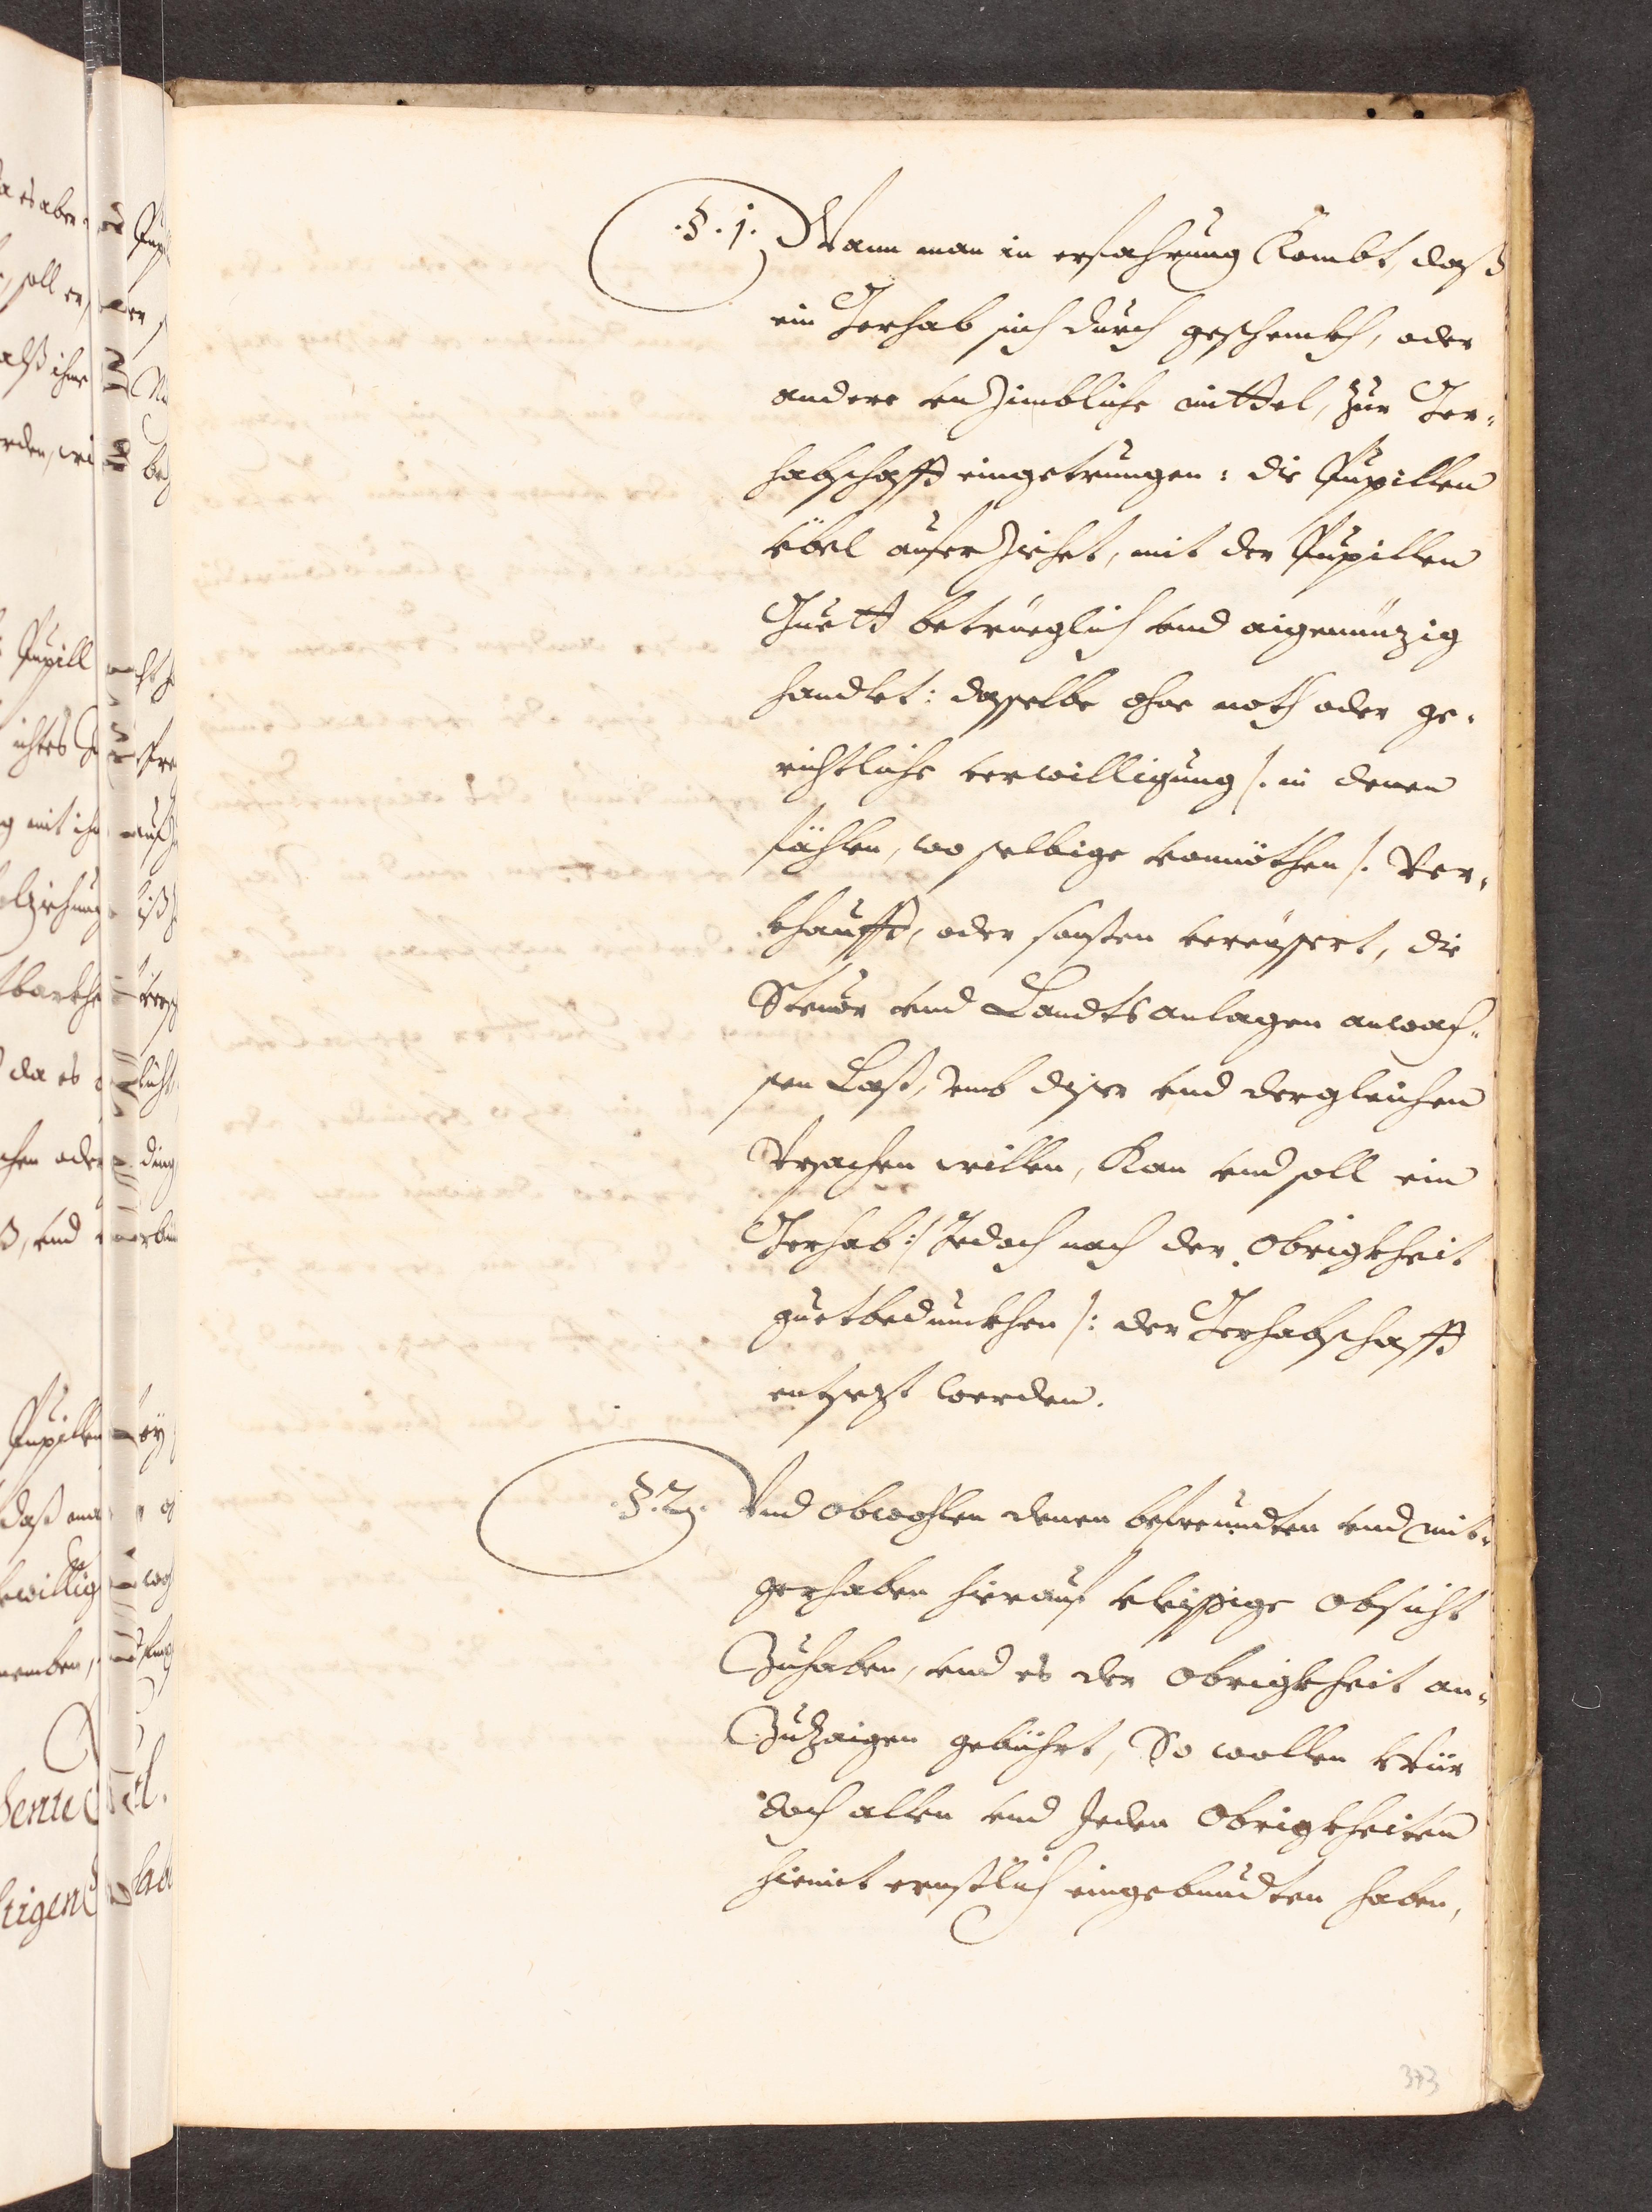 .§.1. Wann man in erfahrung Kombt, daß
ein Gerhab sich durch geschenkh, oder
andere unzimbliche mittel, zur Ger-
habschafft eingetrungen: die Pupillen
übel auferziehet, mit der Pupillen
Guett betrüeglich und aigennüzig
handlet: dasselbe ohne noth oder ge-
richtliche verwilligung /: in denen
fählen, wo selbige vonnöthen /: Ver-
khaufft, oder sonsten vereüssert, die
Steuer und Landtsanlagen anwach-
sen Last, Umb diser und dergleichen
Ursachen willen, Kan und soll ein
Gerhab :/ Jedoch nach der Obrigkheit
guetbedunckhen /: der Gerhabschafft
entsezt werden.
.§.2. Und obwohlen denen befreundten und mit-
gerhaben hierauf vleissige obsicht
Zuhaben, und es der Obrigkheit an-
Zuzaigen gebührt, So wollen Wür
doch allen und Jeden Obrigkheiten
hiemit ernstlich eingebundten haben,
373